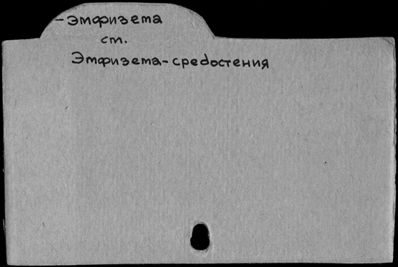 -Эмфизема
ст.
Эмфизема-средостения